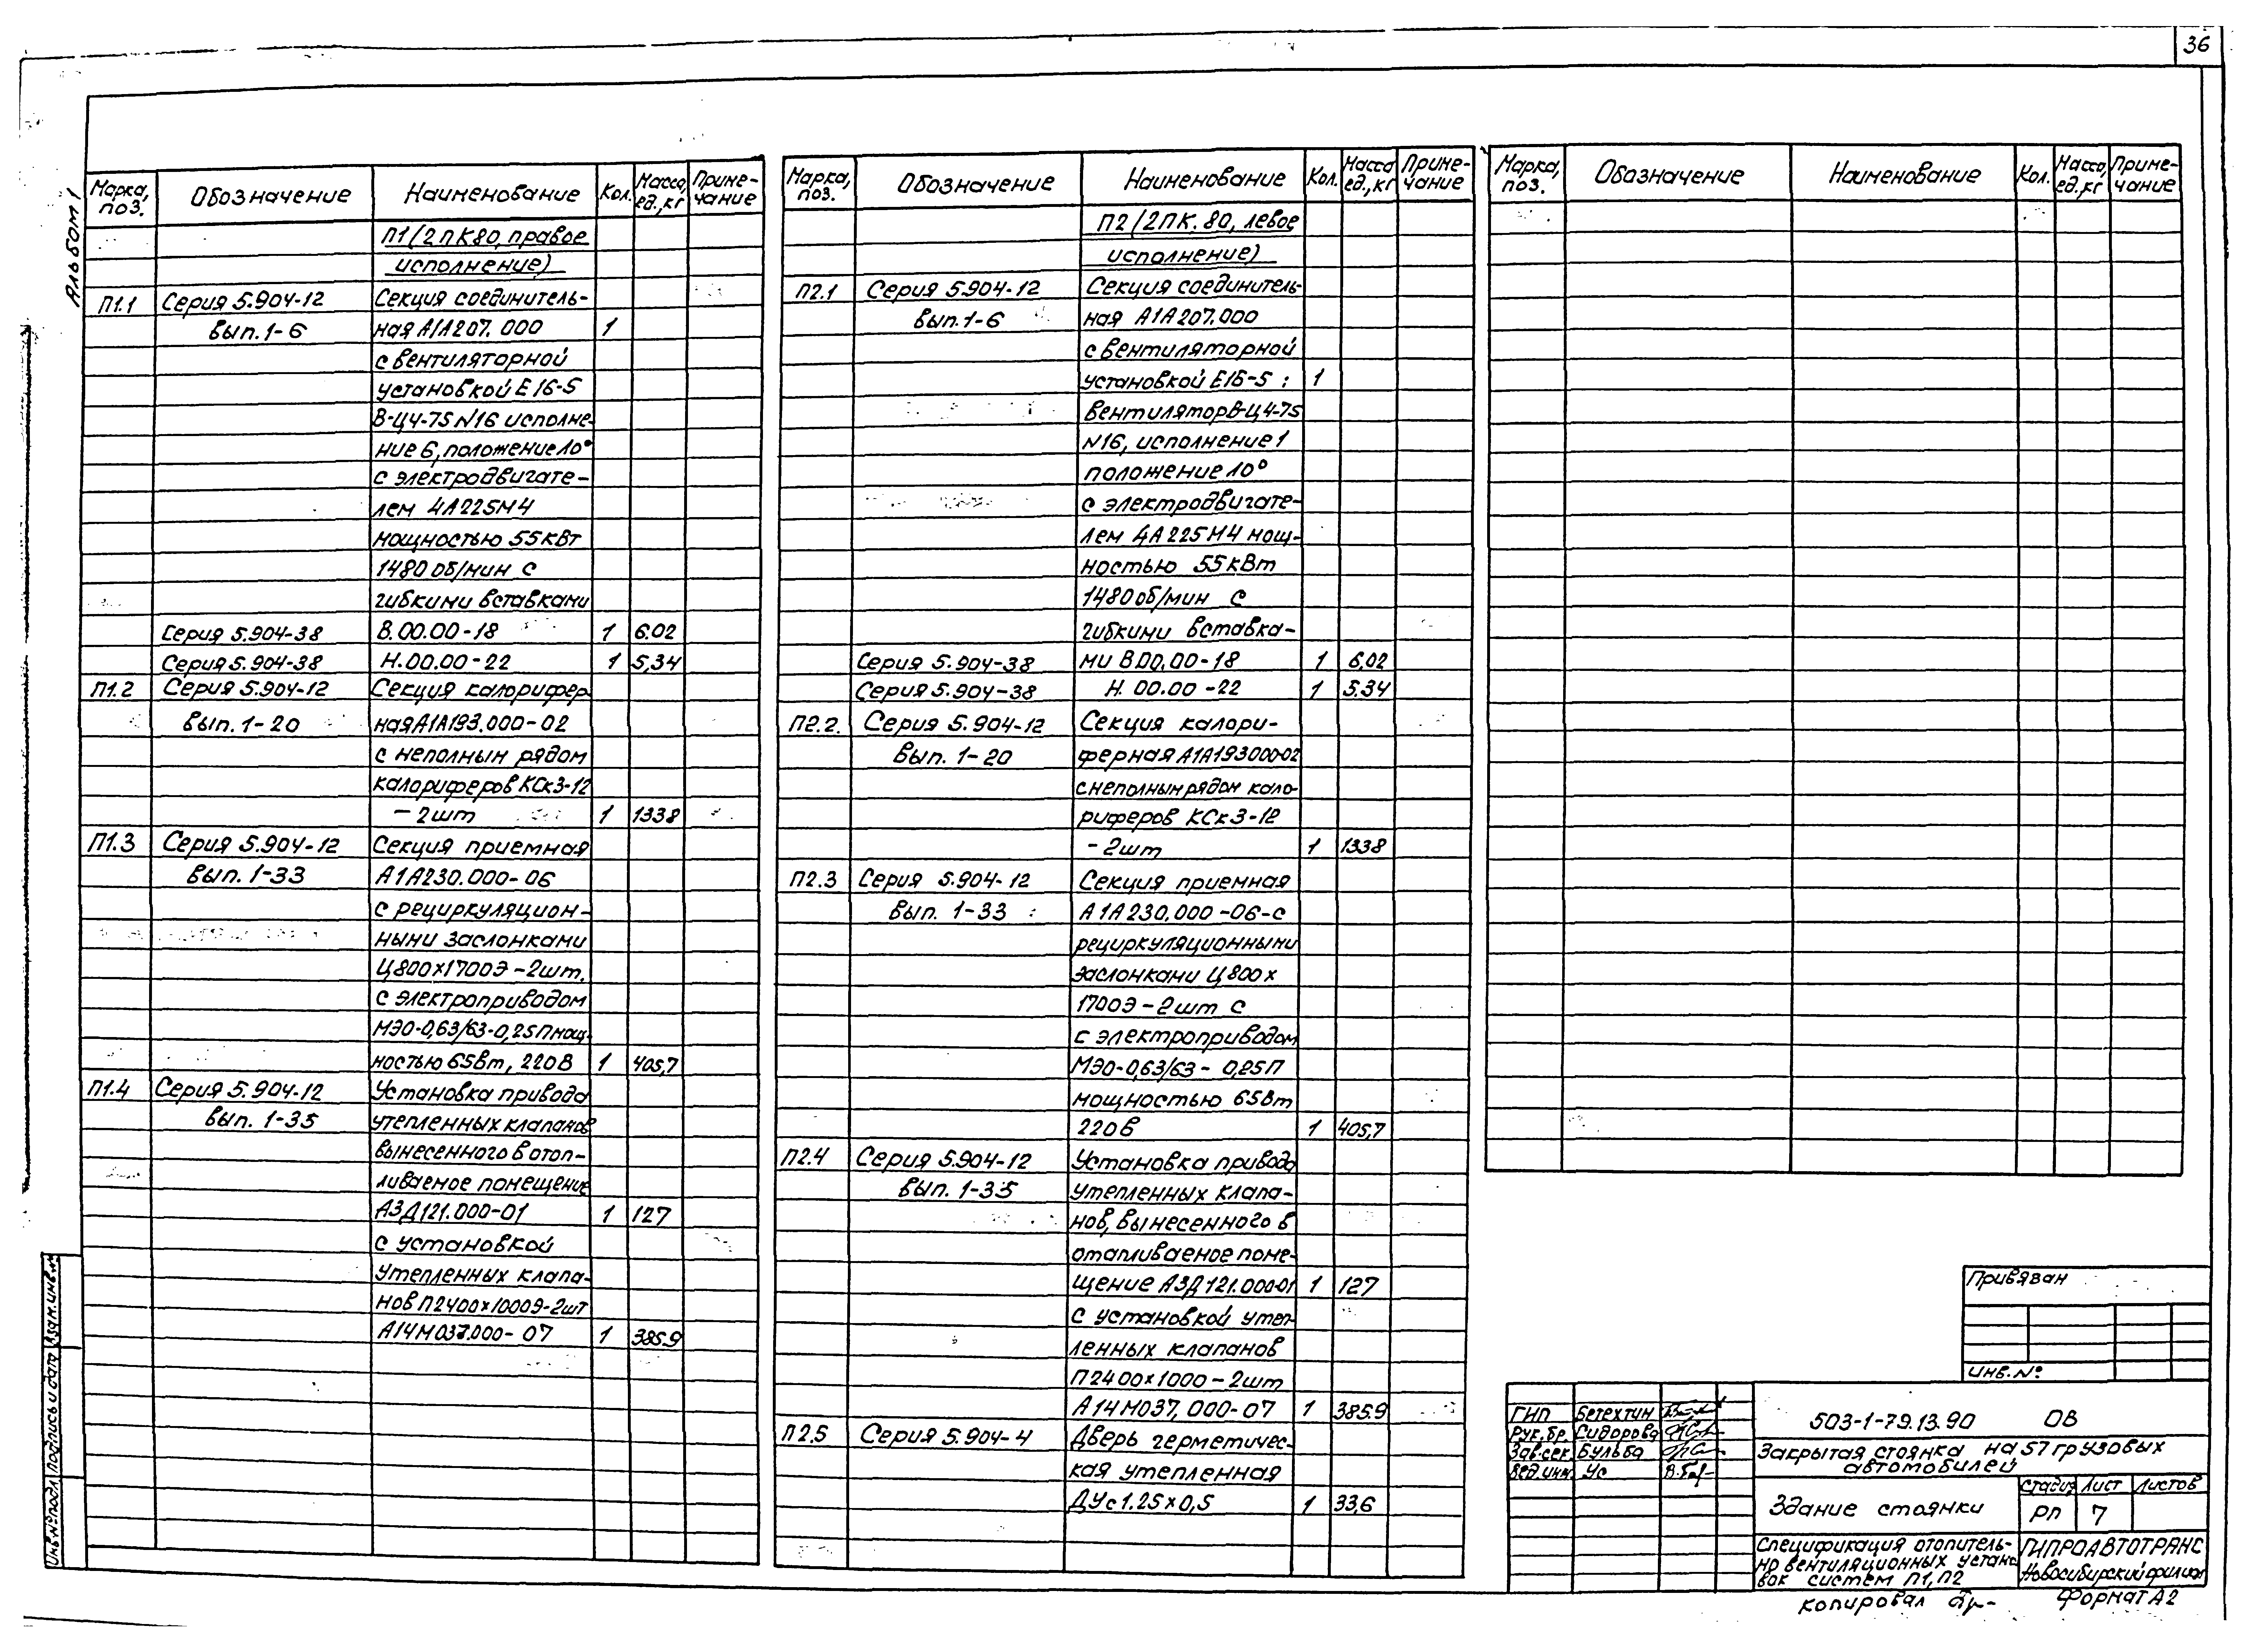 36
Альбом 1
Марка, поз. Обозначение Наименование Кол. Масса ед., кг Приме-чание
П1 (2ПК80, правое
исполнение)
П1.1 Серия 5.904-12 Секция соединитель-
вып. 1-6 ная А1А207.000 1
с вентиляторной
установкой Е16-5
В-Ц4-75 N16 исполне-
ние 6, положение 10°
с электродвигате-
лем 4А225М4
мощностью 55кВт
1480 об/мин с
гибкими вставками
Серия 5.904-38 В.00.00-18 1 6.02
Серия 5.904-38 Н.00.00-22 1 5,34
П1.2 Серия 5.904-12 Секция калорифер
вып. 1-20 ная А1А193.000-02
с неполным рядом
калориферов КСк3-12
-2шт 1 1338
П1.3 Серия 5.904-12 Секция приемная
вып. 1-33 А1А230.000-06
с рециркуляцион-
ными заслонками
Ц800х1700Э-2шт.
с электроприводом
МЭО-0,63/63-0,25П мощ-
ностью 65вт, 220В 1 405,7
П1.4 Серия 5.904-12 Установка привода
вып. 1-35 утепленных клапанов
вынесенного в отоп-
ливаемое помещение
А3Д121.000-01 1 127
с установкой
утепленных клапа-
нов П2400х1000Э-2шт
А14М037.000-07 1 385.9
Марка, поз. Обозначение Наименование Кол. Масса ед., кг Приме-чание
П2 (2ПК.80, левое
исполнение)
П2.1 Серия 5.904-12 Секция соединитель-
вып. 1-6 ная А1А207.000
с вентиляторной
установкой Е16-5: 1
вентилятор В-Ц4-75
N16, исполнение 1
положение 10°
с электродвигате-
лем 4А225М4 мощ-
ностью 55кВт
1480 об/мин с
гибкими вставка-
Серия 5.904-38 ми В.00.00-18 1 6.02
Серия 5.904-38 Н.00.00-22 1 5.34
П2.2. Серия 5.904-12 Секция калори-
вып. 1-20 ферная А1А193000-02
с неполным рядом кало-
риферов КСк3-12
-2шт 1 1338
П2.3 Серия 5.904-12 Секция приемная
вып. 1-33 А1А230.000-06-с
рециркуляционными
заслонками Ц800х
1700Э-2шт с
с электроприводом
МЭО-0,63/63-0,25П
мощностью 65Вт
220В 1 405,7
П2.4 Серия 5.904-12 Установка привода
вып. 1-35 утепленных клапа-
нов, вынесенного в
отапливаемое поме-
щение А3Д121.000-01 1 127
с установкой утеп-
ленных клапанов
П2400х1000-2шт
А14М037.000-07 1 385.9
П2.5 Серия 5.904-4 Дверь герметичес-
кая утепленная
ДУс1.25х0,5 1 33,6
Марка, поз. Обозначение Наименование Кол. Масса, ед., кг Приме-чание
Привязан
Инв. №
ГИП Бетехтин
Рук. бр. Сидорова
Зав. сек. Бульба
Вед. инж Ус
503-1-79.13.90 ОВ
Закрытая стоянка на 57 грузовых
автомобилей
Здание стоянки
стадия Лист Листов
РП 7
Спецификация отопитель-
но вентиляционных устано
вок систем П1, П2
ГИПРОАВТОТРАНС
Новосибирский филиал
копировал
Формат А2
Инв. № подл. Подпись и дата Взам. инв. №